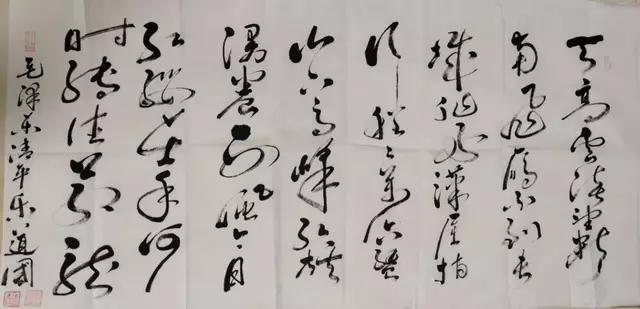 天高云淡望断
南飞雁不到长
城非好汉屈指
行程二万六盘
山上高峰红旗
漫卷西风今日
长缨在手何
时缚住苍龙
毛泽东清平乐道国